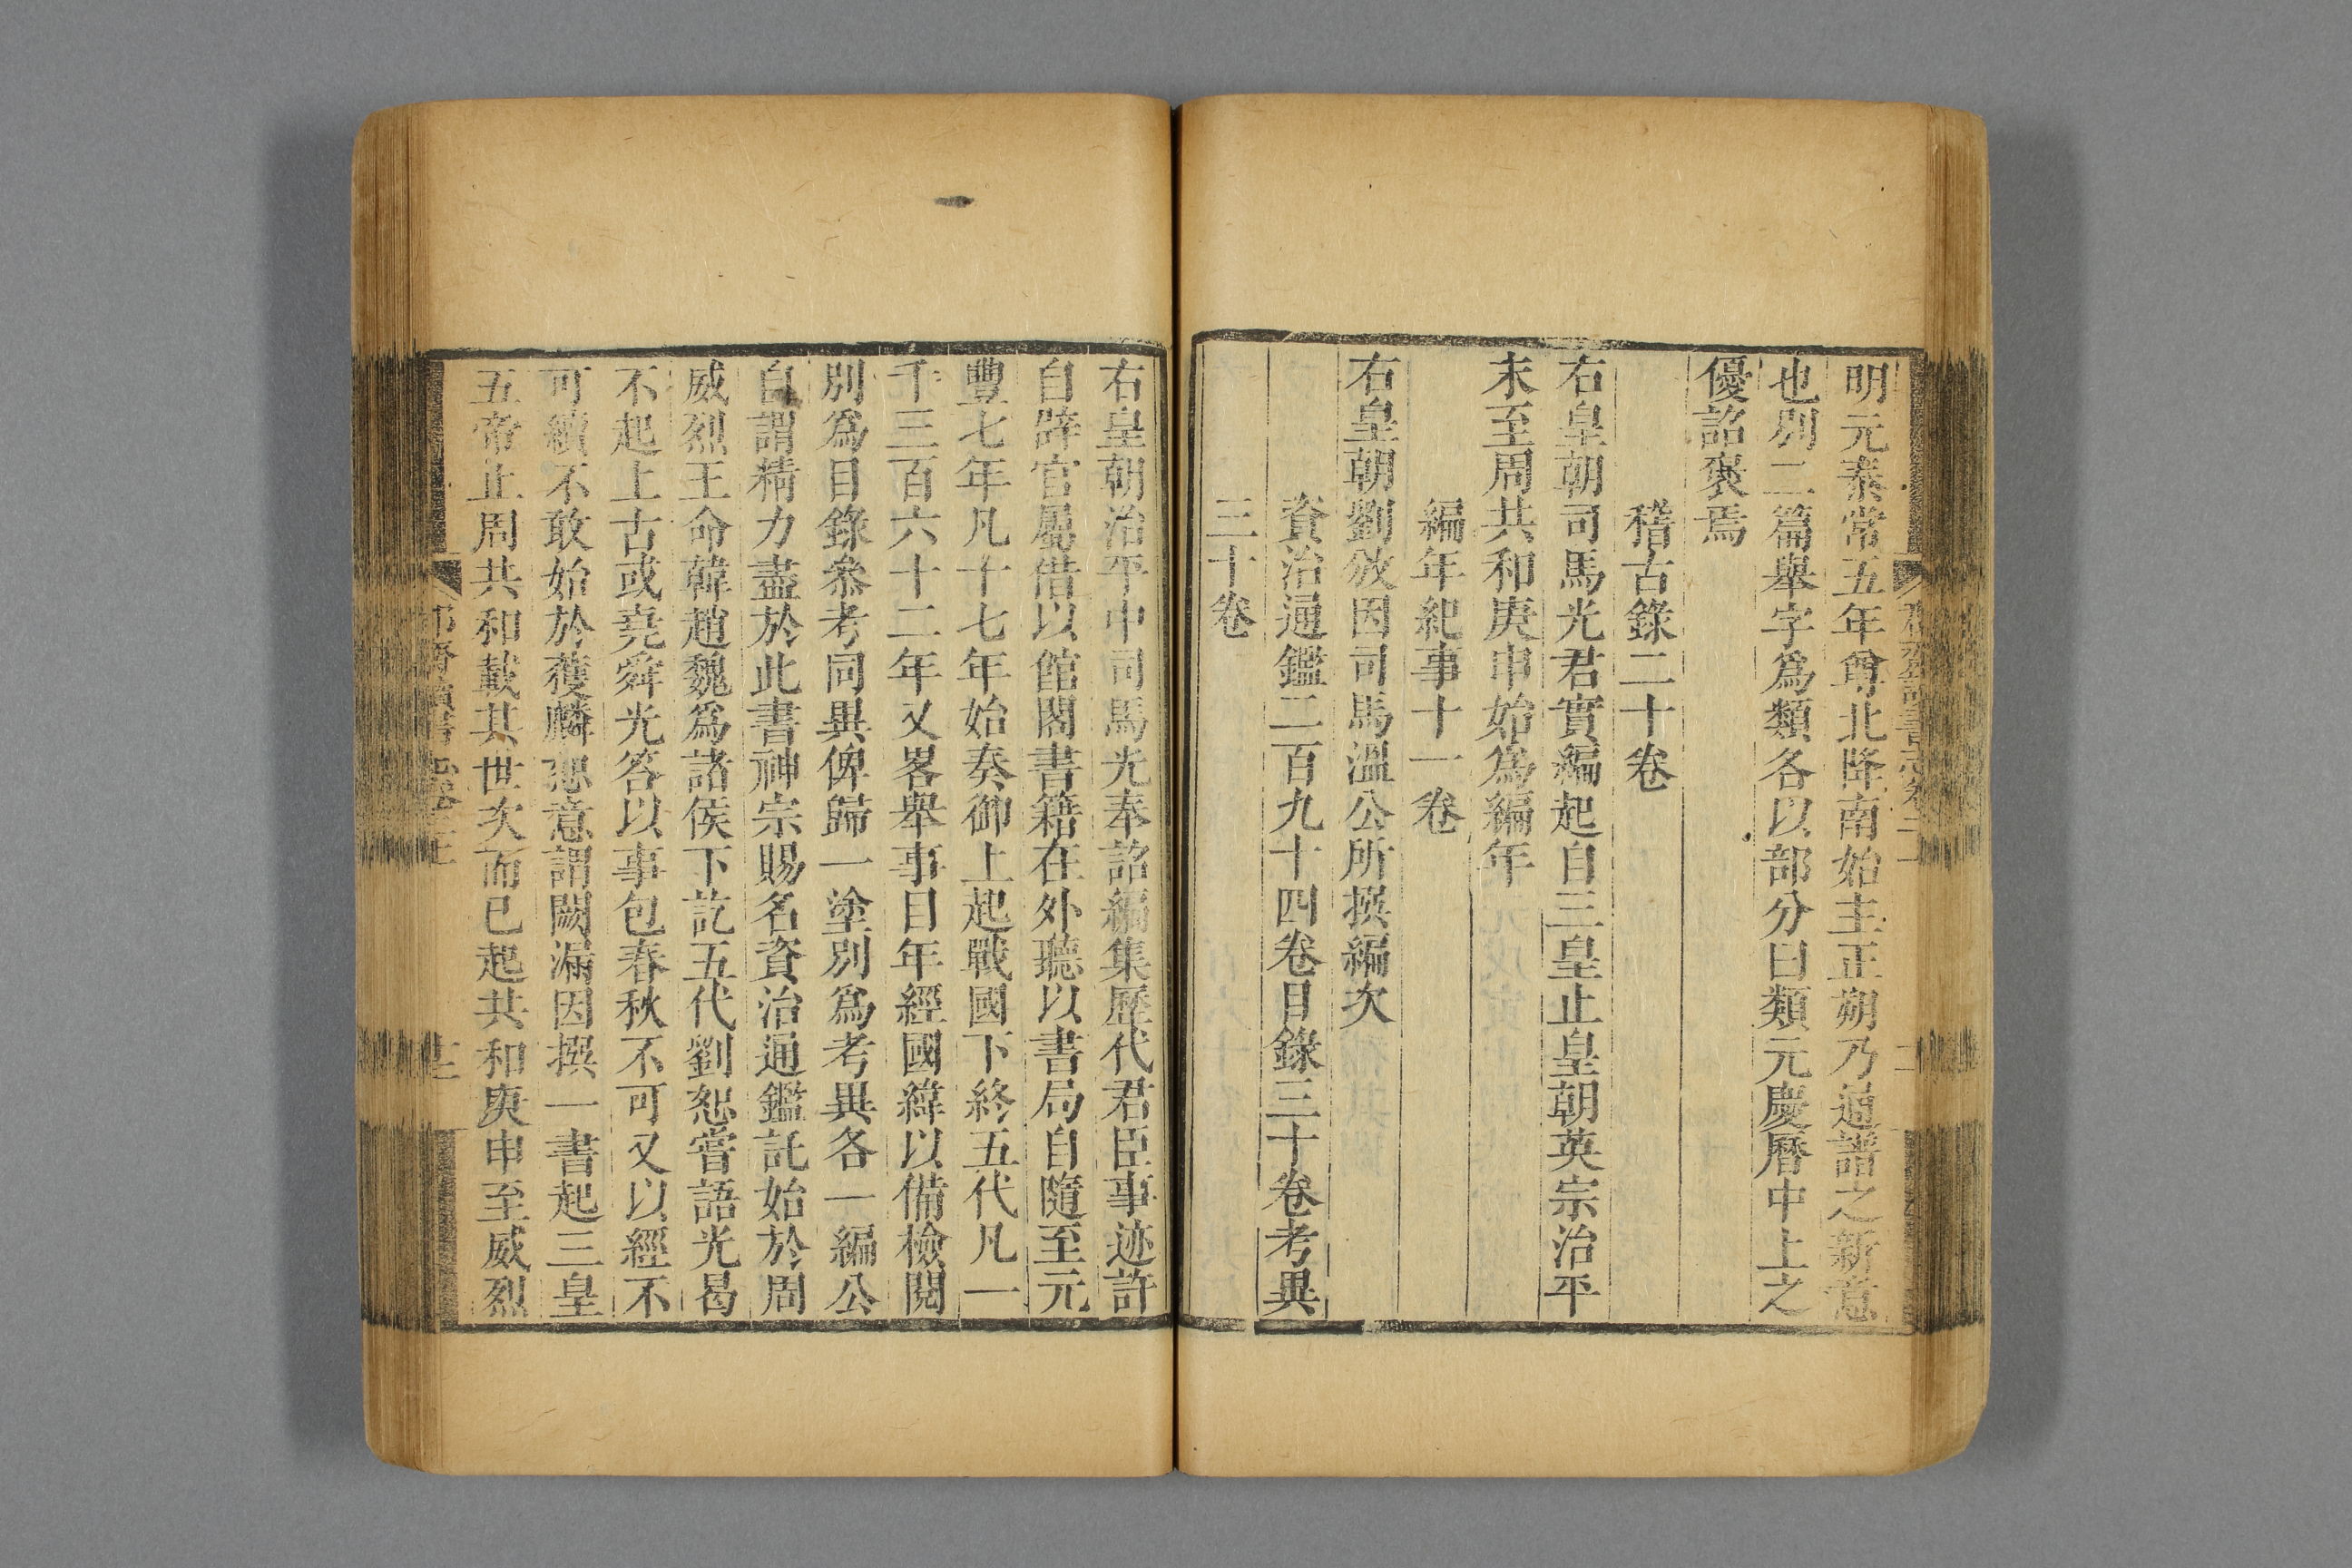 明元泰常五年尊北降南始主正朔乃通譜之新意
也別二篇舉字爲類各以部分曰類元慶曆中上之
優詔褒焉
稽古錄二十卷
右皇朝司馬光君實編起自三皇止皇朝英宗治平
末至周共和庚申始爲編年
編年紀事十一卷
右皇朝劉攽因司馬溫公所撰編次
資治通鑑二百九十四卷目錄三十卷考異
三十卷
右皇朝治平中司馬光奉詔編集歷代君臣事迹許
自辟官屬借以館閣書籍在外聽以書局自隨至元
豐七年凡十七年始奏御上起戰國下終五代凡一
千三百六十二年又畧舉事目年經國緯以備檢閱
別爲目錄叅考同異俾歸一塗別爲考異各一編公
自謂精力盡於此書神宗賜名資治通鑑託始於周
威烈王命韓趙魏爲諸侯下訖五代劉恕嘗語光曷
不起上古或堯舜光答以事包春秋不可又以經不
可續不敢始於獲麟恕意謂闕漏因撰一書起三皇
五帝止周共和載其世次而已起共和庚申至威烈